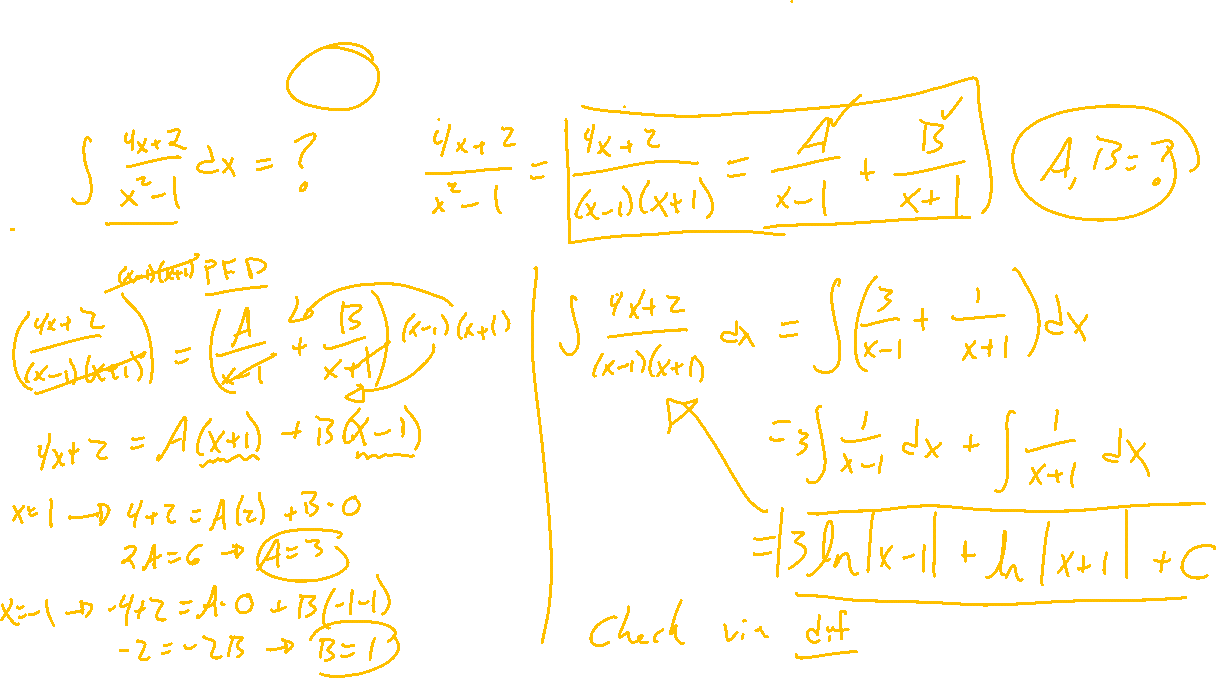 ∫ (4x+2)/(x²-1) dx = ?
(4x+2)/(x²-1) = (4x+2)/((x-1)(x+1)) = A/(x-1) + B/(x+1)
A, B = ?
(x-1)(x+1) PFD
((4x+2)/((x-1)(x+1))) = (A/(x-1) + B/(x+1)) (x-1)(x+1)
4x+2 = A(x+1) + B(x-1)
x=1 → 4+2 = A(2) + B·0
2A=6 → A=3
x=-1 → -4+2 = A·0 + B(-1-1)
-2 = -2B → B=1
∫ (4x+2)/((x-1)(x+1)) dx = ∫ (3/(x-1) + 1/(x+1)) dx
= 3∫ 1/(x-1) dx + ∫ 1/(x+1) dx
= 3 ln|x-1| + ln|x+1| + C
Check via dif